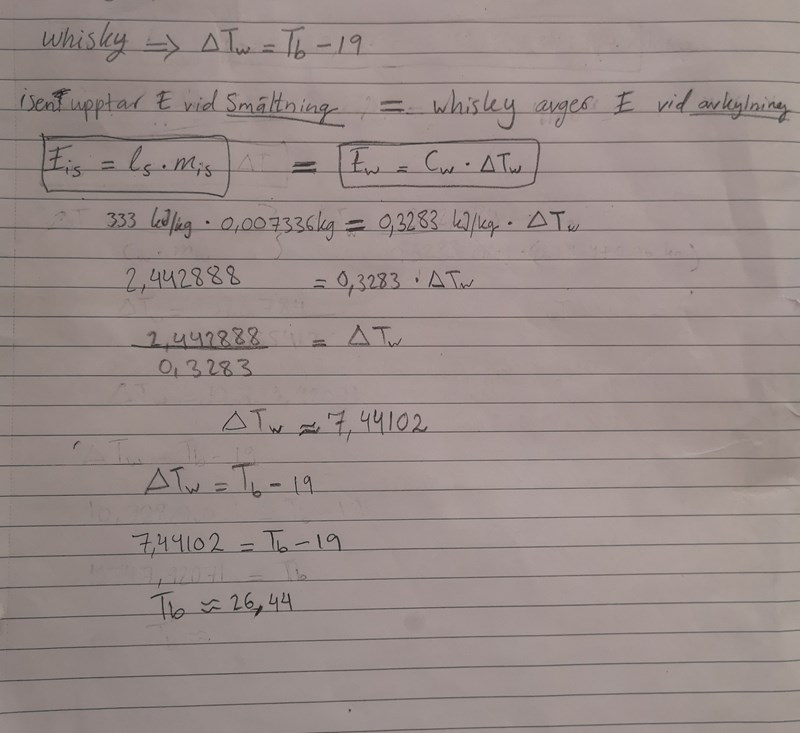 whisky => ΔTw = Tb - 19
isen upptar E vid Smältning = whisky avger E vid avkylning
Eis = ls · mis = Ew = Cw · ΔTw
333 kJ/kg · 0,007336kg = 0,3283 kJ/kg · ΔTw
2,442888 = 0,3283 · ΔTw
2,442888 = ΔTw
0,3283
ΔTw ≈ 7,44102
ΔTw = Tb - 19
7,44102 = Tb - 19
Tb ≈ 26,44